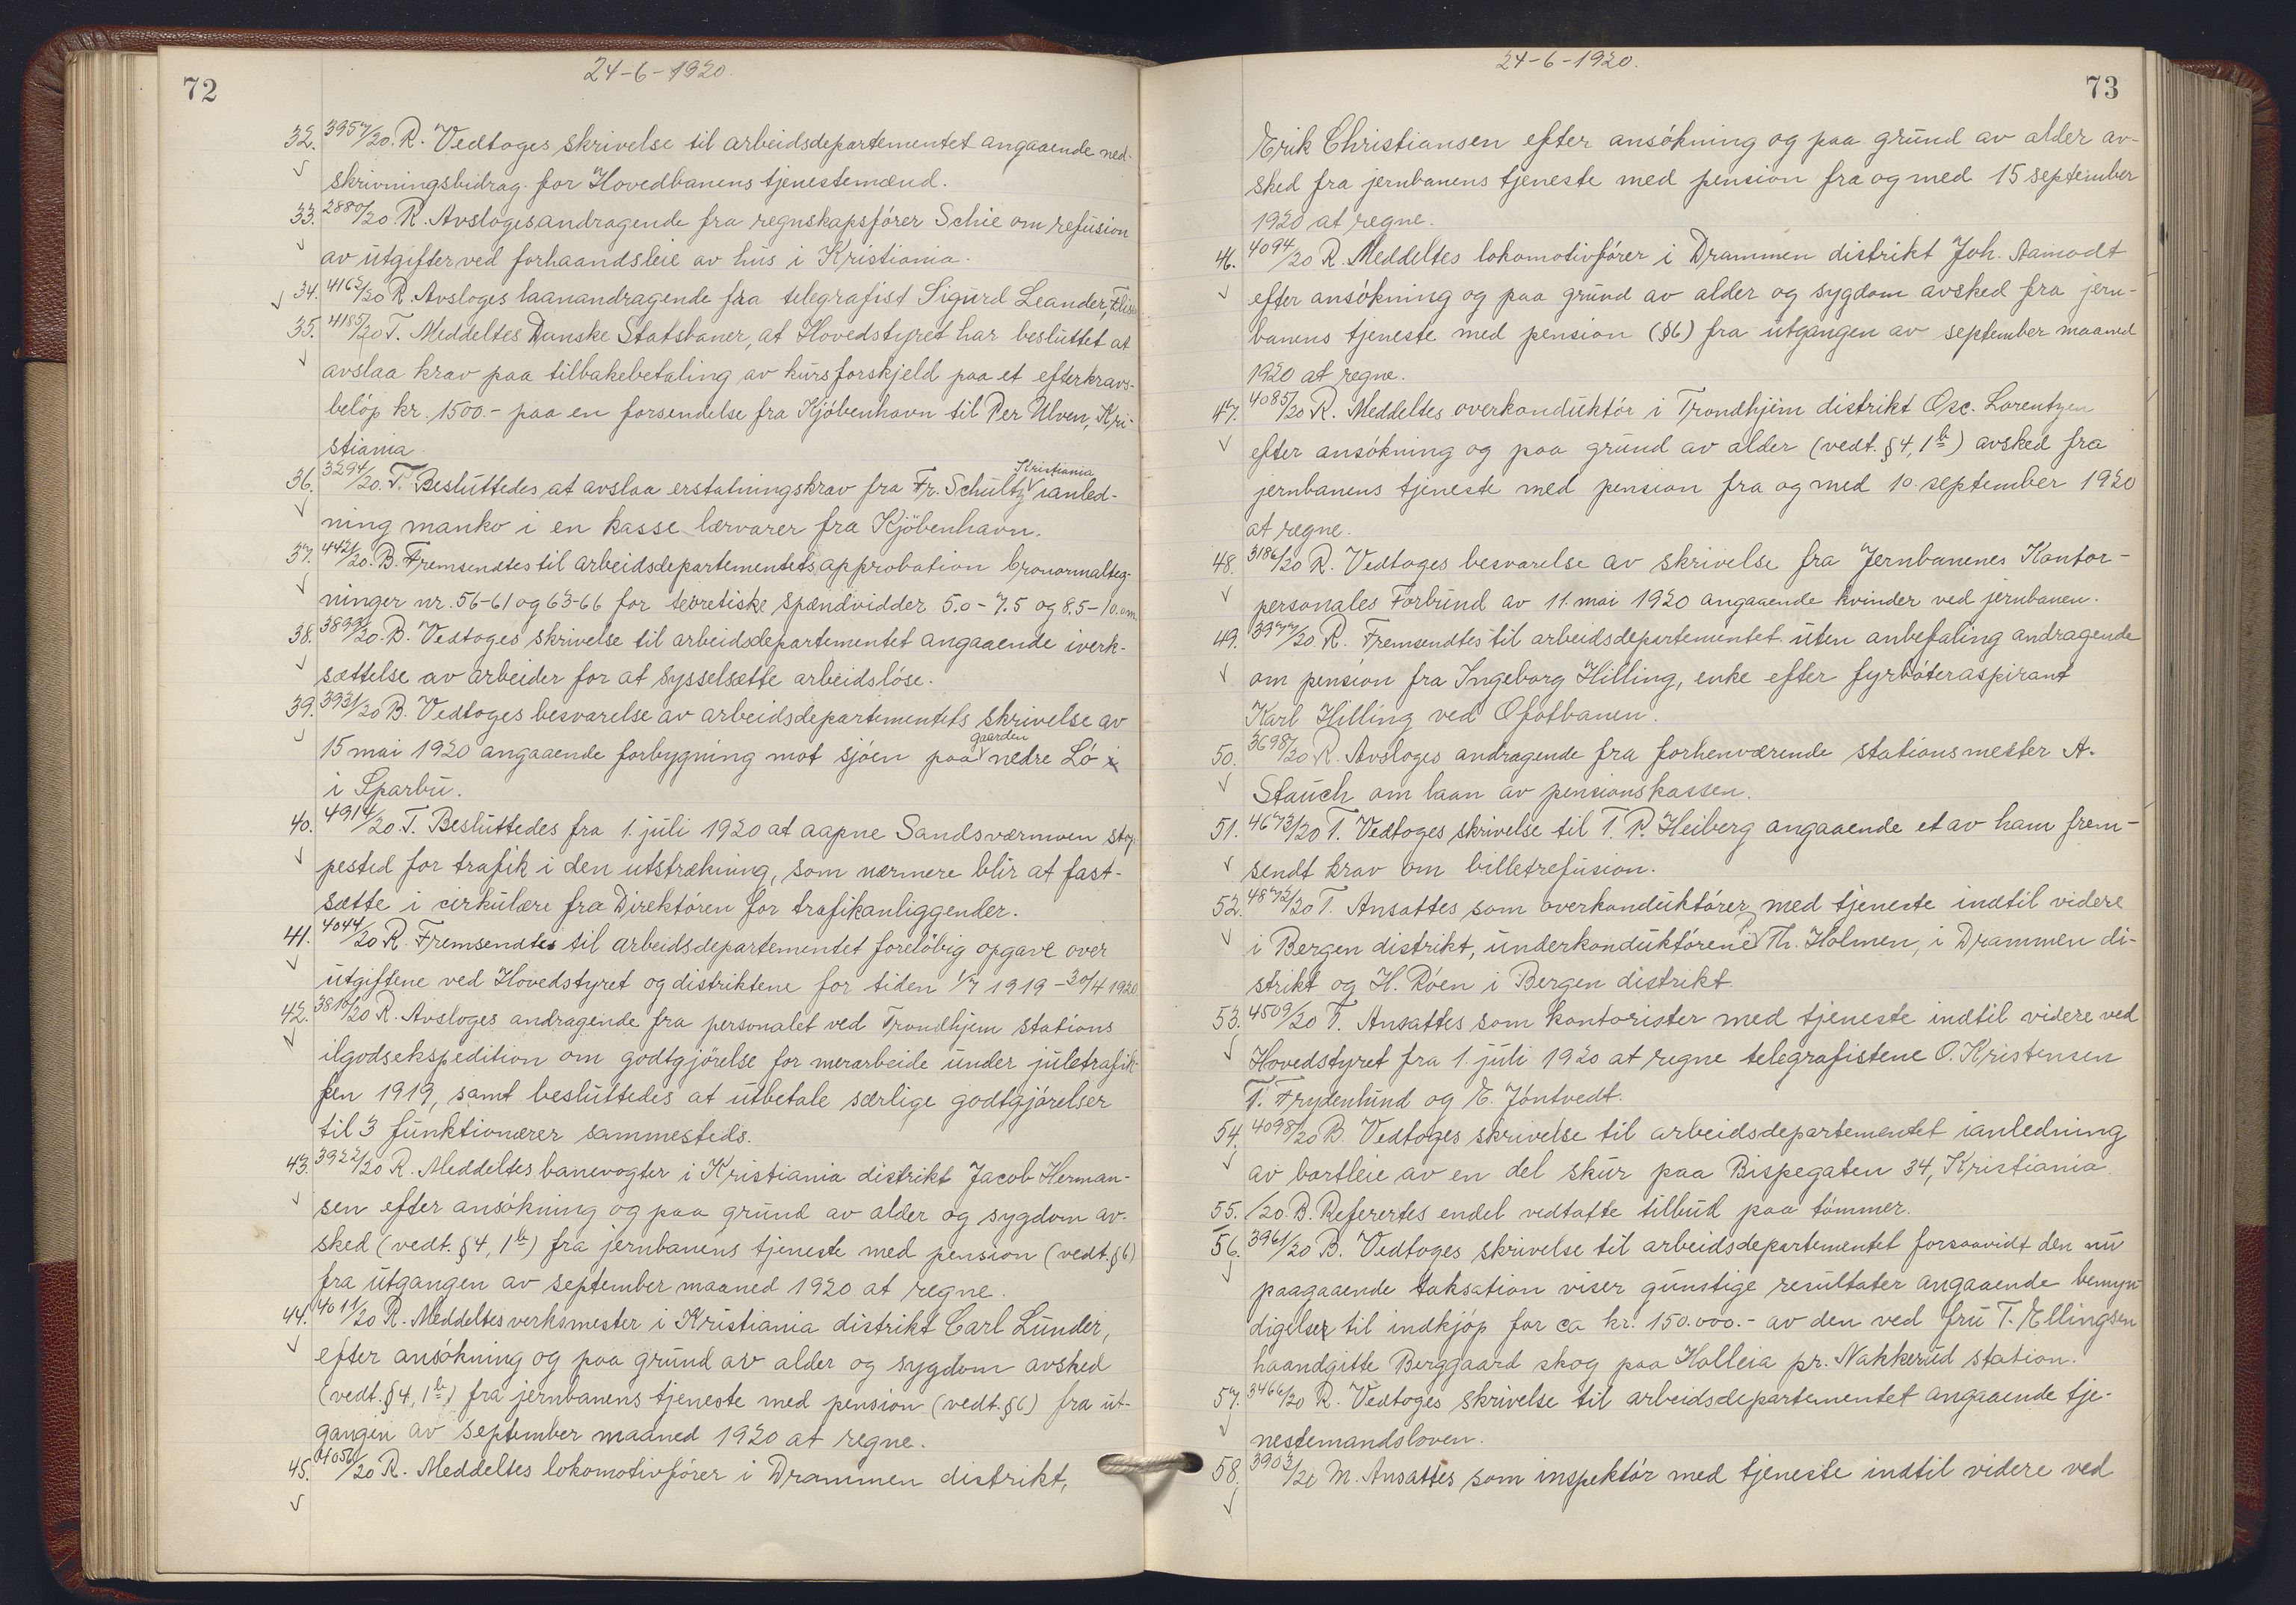 72
24-6-1920.
32. 3957/20. R. Vedtoges skrivelse til arbeidsdepartementet angaaende ned-
skrivningsbidrag for Hovedbanens tjenestemænd.
33. 2880/20. R. Avsloges andragende fra regnskapsfører Schie om refusion
av utgifter ved forhaandsleie av hus i Kristiania.
34. 4162/20 R. Avsloges laanandragende fra telegrafist Sigurd Leander,
35. 4185/20 T. Meddeltes Danske Statsbaner, at Hovedstyret har besluttet at
avslaa krav paa tilbakebetaling av kursforskjeld paa et efterkravs-
beløp kr. 1500.- paa en forsendelse fra Kjøbenhavn til Per Ulven, Kri-
stiania
36. 3294/20. T. Besluttedes at avslaa erstatningskrav fra Fr. Schultz Kristiania ianled-
ning manko i en kasse lærvarer fra Kjöbenhavn.
37. 4421/20. B. Fremsendtes til arbeidsdepartementets approbation bronormalteg-
ninger nr. 56-61 og 63-66 for teoretiske spændvidder 5.0-7.5 og 8.5-10.0m.
38. /20. B. Vedtoges skrivelse til arbeidsdepartementet angaaende iverk-
sættelse av arbeider for at sysselsætte arbeidsløse.
39. 3921/20 B. Vedtoges besvarelse av arbeidsdepartementets skrivelse av
15 mai 1920 angaaende forbygning mot sjøen paa gaarden nedre Lø
i Sparbu.
40. 4914/20. T. Besluttedes fra 1. juli 1920 at aapne Sandsværmoen stop-
pested for trafik i den utstrækning, som nærmere blir at fast-
sætte i cirkulære fra Direktøren for trafikanliggender.
41. 4044/20 R. Fremsendtes til arbeidsdepartementet foreløbig opgave over
utgiftene ved Hovedstyret og distriktene for tiden 1/7 1919 - 30/4 1920
42. 3810/20 R. Avsloges andragende fra personalet ved Trondhjem stations
ilgodsekspedition om godtgjørelse for merarbeide under juletrafik-
ken 1919, samt besluttedes at utbetale særlige godtgjørelser
til 3 funktionærer sammesteds.
43. 3922/20 R. Meddeltes banevogter i Kristiania distrikt Jacob Herman-
sen efter ansøkning og paa grund av alder og sygdom av-
sked (vedt. § 4, 1 b) fra jernbanens tjeneste med pension (vedt. § 6)
fra utgangen av september maaned 1920 at regne.
44. 4011/20 R. Meddeltes verksmester i Kristiania distrikt Carl Lunder,
efter ansøkning og paa grund av alder og sygdom avsked
(vedt. § 4, 1 b) fra jernbanens tjeneste med pension (vedt. § 6) fra ut-
gangen av september maaned 1920 at regne.
45. 4056/20 R. Meddeltes lokomotivfører i Drammen distrikt,
73
24-6-1920.
Erik Christiansen efter ansøkning og paa grund av alder av-
sked fra jernbanens tjeneste med pension fra og med 15 september
1920 at regne.
46. 4094/20 R. Meddeltes lokomotivfører i Drammen distrikt Joh. Aamodt
efter ansøkning og paa grund av alder og sygdom avsked fra jern-
banens tjeneste med pension (§6) fra utgangen av september maaned
1920 at regne.
47. 4085/20 R. Meddeltes overkonduktør i Trondhjem distrikt Osc. Lorentzen
efter ansøkning og paa grund av alder (vedt. § 4, 1 b) avsked fra
jernbanens tjeneste med pension fra og med 10. september 1920
at regne.
48. 3186/20 R. Vedtoges besvarelse av skrivelse fra Jernbanenes Kontor-
personales Forbund av 11. mai 1920 angaaende kvinder ved jernbanen.
49. 3977/20. R. Fremsendtes til arbeidsdepartementet uten anbefaling andragende
om pension fra Ingeborg Hilling, enke efter fyrbøteraspirant
Karl Hilling ved Ofotbanen.
50. 3698/20 R. Avsloges andragende fra forhenværende stationsmester A.
Stauch om laan av pensionskassen.
51. 4673/20 T. Vedtoges skrivelse til T. P. Heiberg angaaende et av ham frem-
sendt krav om billetrefusion.
52. 4872/20 T. Ansattes som overkonduktører med tjeneste indtil videre
i Bergen distrikt, underkonduktørene Th. Holmen, i Drammen di-
strikt og H. Røen i Bergen distrikt.
53. 4509/20 T. Ansattes som kontorister med tjeneste indtil videre ved
Hovedstyret fra 1. juli 1920 at regne telegrafistene O. Kristensen
T. Frydenlund og E. Jøntvedt.
54. 4098/20 B. Vedtoges skrivelse til arbeidsdepartementet ianledning
av bortleie av en del skur paa Bispegaten 34, Kristiania.
55. /20. B. Refererte​s endel vedtatte tilbud paa tømmer.
56. 3961/20 B. Vedtoges skrivelse til arbeidsdepartementet forsaavidt den nu
paagaaende taksation viser gunstige resultater angaaende bemyn-
digelse til indkjøp for ca kr. 150.000.- av den ved fru T. Ellingsen
haandgitte Berggaard skog paa Holleia pr. Nakkerud station.
57. 3466/20 R. Vedtoges skrivelse til arbeidsdepartementet angaaende tje-
nestemandsloven.
58. 3903/20 M. Ansattes som inspektør med tjeneste indtil videre ved